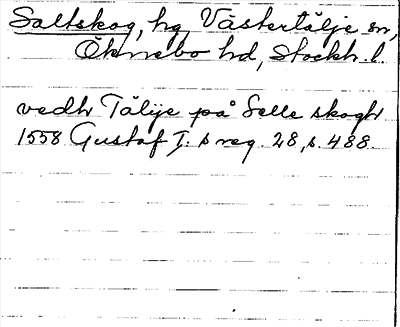 Saltskog, hg, Västertälje sn,
Öknebo hd, Stockh. l.
vedh Tälije på Selle skogh
1558 Gustaf I:s reg. 28, s. 488.